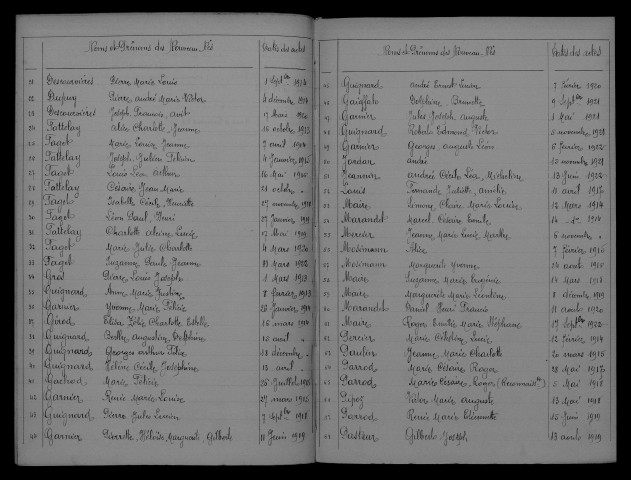 Noms et Prénoms des Nouveau-Nés Dates des actes
21 Dessourvières Pierre Marie Louis 1 Septbre 1914
22 Dupuy Pierre André Marie Victor 4 décembre 1914
23 Dessourvières Joseph François 17 Mars 1920
24 Fattelay Alix Charlotte Jeanne 16 octobre 1913
25 Faget Marie Louise Jeanne 7 avril 1914
26 Fattelay Joseph Julien 4 Janvier 1915
27 Faget Louis Léon Arthur 16 Mai 1916
28 Fattelay Césaire Jean Marie 21 octobre
29 Faget Isabelle Cécile Henriette 27 novembre 1918
30 Faget Léon Paul Henri 27 Janvier 1919
31 Fattelay Charlotte Louise 17 Mai 1919
32 Faget Marie Julie Charlotte 4 Mars 1920
33 Faget Suzanne Jeanne 23 Mars 1922
34 Gros Pierre Louis Joseph 1 Mars 1913
35 Guignard Anne Marie 8 février 1913
36 Garnier Yvonne Marie Félicie 26 Janvier 1914
37 Girod Elisa Zélie Charlotte Estelle 16 mars 1914
38 Guignard Berthe Augustine Delphine 10 avril
39 Guignard Georges Arthur Félix 31 décembre
40 Guignard Hélène Cécile Joséphine 13 avril
41 Marie Félicie 26 Juillet 1915
42 Garnier Renée Marie Louise 27 mars 1916
43 Guignard Pierre Jules Lucien 7 Septbre 1918
44 Garnier Pierrette Héloïse Marguerite Gilberte 11 Juin 1919
Noms et Prénoms des Nouveau-Nés Dates des actes
45 Guignard André Ernest 7 Février 1920
46 Delphine 9 Septbre 1921
47 Garnier Jules Joseph Auguste 1 Mai 1921
48 Guignard Edmond Victor 5 novembre 1921
49 Garnier Georges Auguste Léon 6 Février 1922
50 Jordan André 10 novembre 1921
51 Jeannin Andrée Cécile Léa 13 Juin 1922
52 Louis Fernande Juliette Amélie 11 avril 1912
53 Maire Simone Claire Marie Louise 12 Mars 1914
54 Marandet Marcel Césaire Emile 14 1914
55 Mercier Jeanne Marie Louise Marthe 6 novembre
56 Mosimann 7 Février 1916
57 Mosimann Marguerite Yvonne 24 août 1920
58 Maire Suzanne Marie Eugénie 14 Mars 1918
59 Maire Marguerite Marie Léontine 8 décembre 1919
60 Marandet Daniel Henri Francis 11 octobre 1920
61 Maire Roger Emile Marie Stéphane 17 Septbre 1922
62 Marie Célestine Lucie 12 février 1914
Paulin Jeanne Marie Charlotte 20 mars 1916
Parrod Marie Césaire Roger 28 Mai 1917
Parrod Marie Césaire Roger (Reconnais) 5 Mai 1918
Victor Marie Auguste 13 Mai 1918
Parrod René Marie Etiennette 15 Juin 1919
Pasteur Gilberte Joseph 13 août 1919